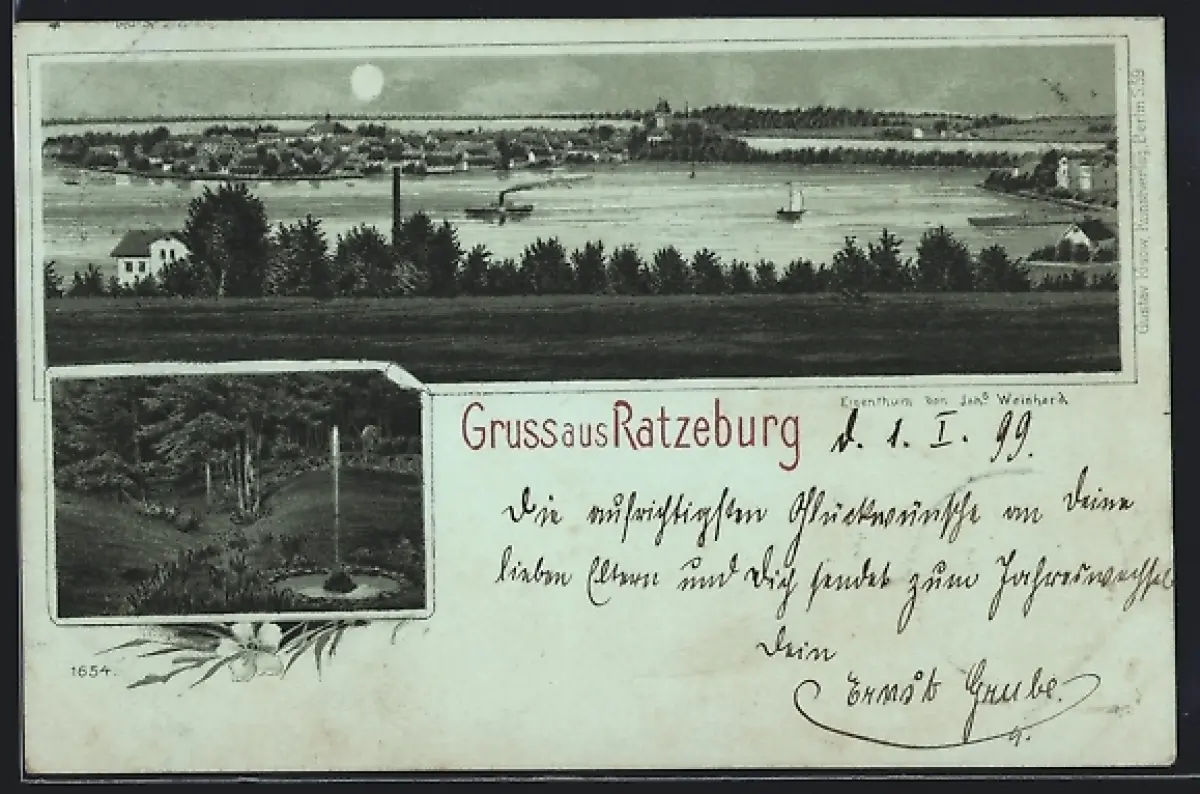 Gustav Kisow, Kunstverlag, Berlin S.59
Eigenthum von Johs Weinhard
Gruss aus Ratzeburg
d. 1. I. 99.
Die aufrichtigsten Glückwünsche an Deine
lieben Eltern und Dich sendet zum Jahreswechsel
Dein
Ernst Grube.
1654.